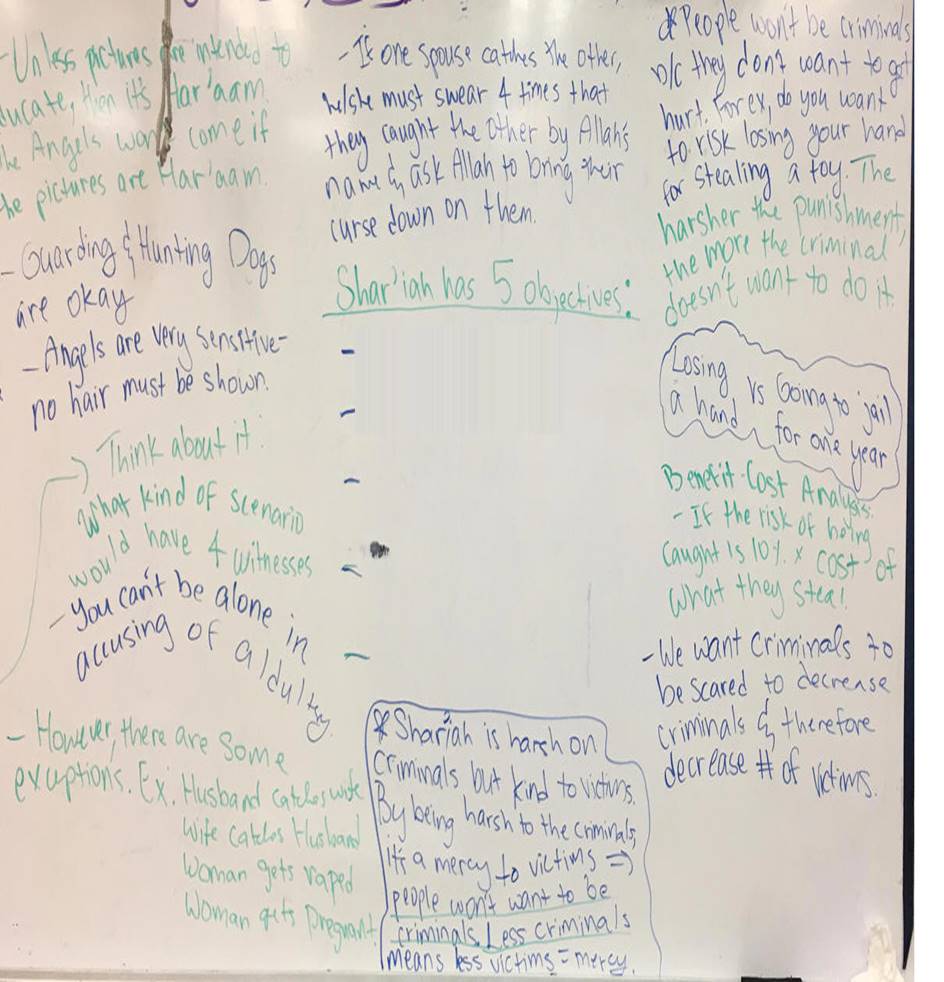 - Unless pictures are intended to
ducate, then it's Har'aam.
he Angels won't come if
he pictures are Har'aam.
- Guarding & Hunting Dogs
are okay
- Angels are very sensitive-
no hair must be shown.
Think about it:
What kind of scenario
would have 4 witnesses
- You can't be alone in
accusing of aldultery.
- However, there are some
exceptions. Ex. Husband catches wife
Wife catches Husband
Woman gets raped
Woman gets Pregnant.
- If one spouse catches the other,
he/she must swear 4 times that
they caught the other by Allah's
name & ask Allah to bring their
curse down on them.
Shar'iah has 5 objectives:
-
-
-
-
-
* Shariah is harsh on
Criminals but kind to victims.
By being harsh to the criminals,
it's a mercy to victims ⇒
people won't want to be
criminals. Less criminals
means less victims = mercy.
* People won't be criminals
b/c they don't want to get
hurt. For ex, do you want
to risk losing your hand
for stealing a toy. The
harsher the punishment,
the more the criminal
doesn't want to do it.
Losing vs Going to jail
a hand for one year
Benefit-Cost Analysis:
- If the risk of being
caught is 10% x cost of
what they steal
- We want criminals to
be scared to decrease
criminals & therefore
decrease # of victims.